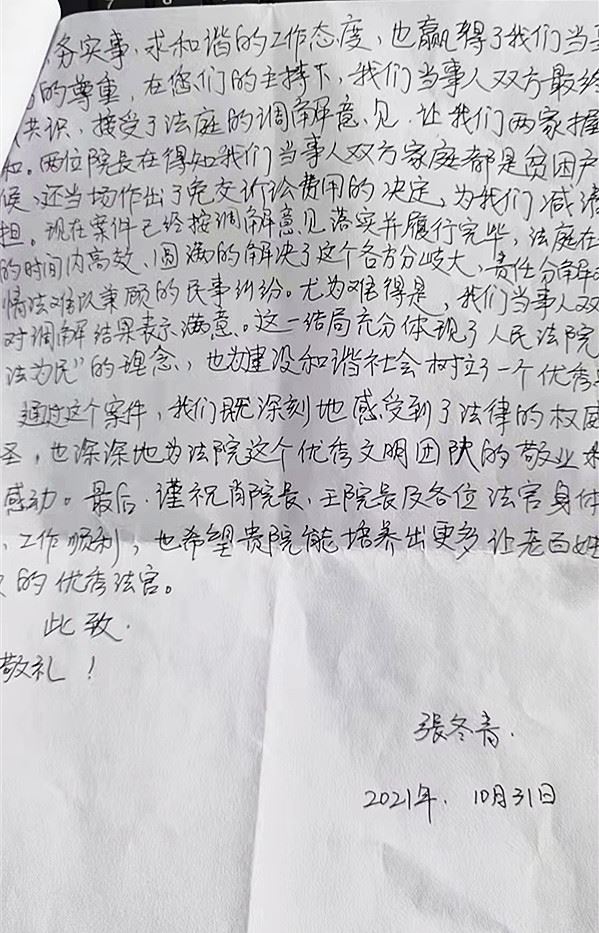 务实事、求和谐的工作态度,也赢得了我们当事
的尊重,在您们的主持下,我们当事人双方最终
共识,接受了法庭的调解意见,让我们两家握
和。两位院长在得知我们当事人双方家庭都是贫困户
候、还当场作出了免交诉讼费用的决定,为我们减
担。现在案件已经按调解意见落实并履行完毕,法庭在
的时间内高效、圆满的解决了这个各方分岐大、责任分解
情法难以兼顾的民事纠纷。尤为难得是,我们当事人双
对调解结果表示满意。这一结局充分体现了人民法院
法为民”的理念,也为建设和谐社会树立了一个优秀
通过这个案件,我们既深刻地感受到了法律的权威
圣,也深深地为法院这个优秀文明团队的敬业
感动。最后,谨祝肖院长、王院长及各位法官身体
、工作顺利,也希望贵院能培养出更多让老百姓
的优秀法官。
此致.
敬礼!
张冬青.
2021年.10月31日